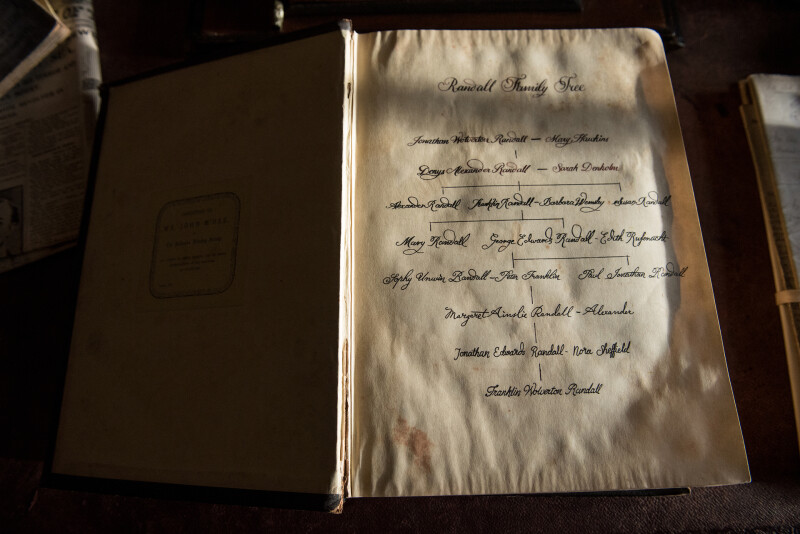 Randall Family Tree
Jonathan Wolverton Randall — Mary Hawkins
Denys Alexander Randall — Sarah
Alexander Randall Franklin Randall - Barbara Susan Randall
Mary Randall George Edwards Randall - Edith
Sophy Unwin Randall - Peter Franklin Paul Jonathan Randall
Margaret Ainslie Randall - Alexander
Jonathan Edwards Randall - Nora Sheffield
Franklin Wolverton Randall